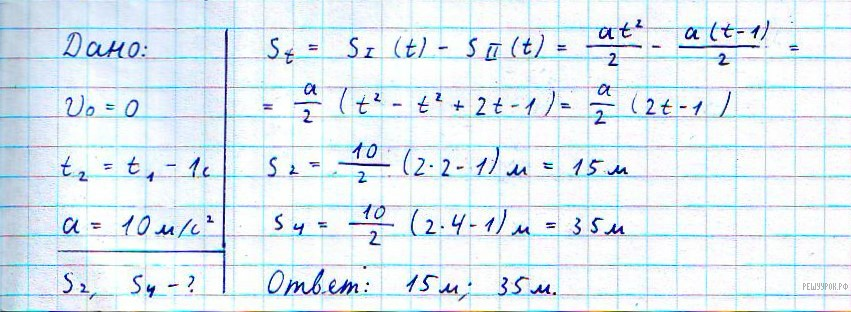 Дано:
υ₀ = 0
t₂ = t₁ - 1с
a = 10 м/с²
S₂, S₄ - ?
S_t = S_I (t) - S_II (t) = at²/2 - a(t-1)/2 =
= a/2 (t² - t² + 2t - 1) = a/2 (2t - 1)
S₂ = 10/2 (2·2-1) м = 15 м
S₄ = 10/2 (2·4-1) м = 35 м
Ответ: 15 м; 35 м.
РЕШУУРОК.РФ